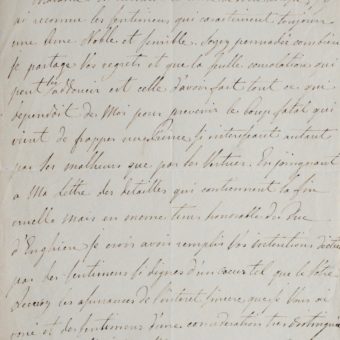 ai reconnu les sentimens qui caracterisent toujours
une ame Noble et sensible. Soyez persuadée combien
Je partage vos regrets et que la seule consolation qui
peut les adoucir est celle d'avoir fait tout ce qui
dependoit de Moi pour prévenir le Coup fatal qui
vient de frapper un si interessant autant
par ses malheurs que par ses Vertues. En joingnant
a Ma lettre des detailles qui contiennent la fin
cruelle mais en meme tems honorable du Duc
d'Enghien je crois avoir remplis vos intentions dictées
par des sentimens si dignes d'un coeur tel que le Vôtre
Recevez les assurances de l'interet sincere que je Vous ai
voué et des sentimens d'une consideration tres distinguée